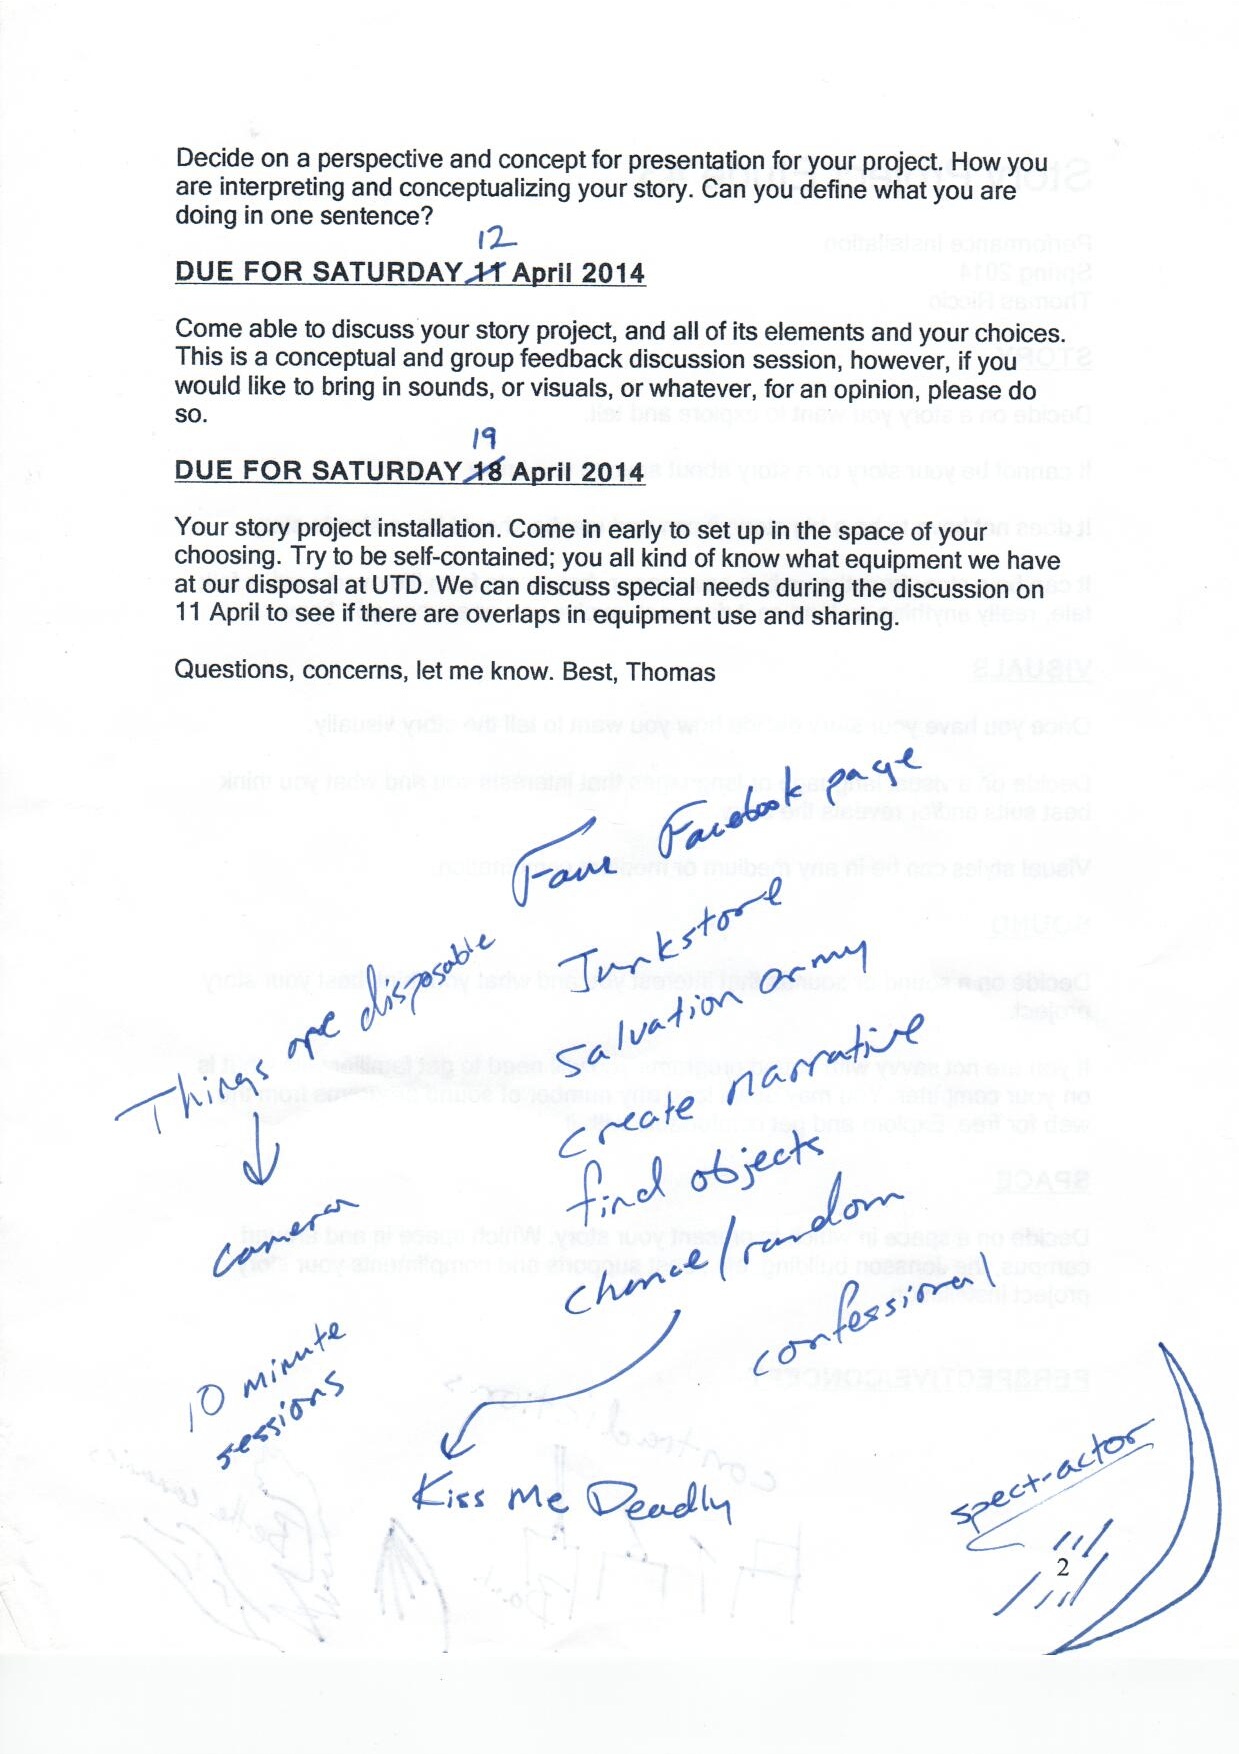 Decide on a perspective and concept for presentation for your project. How you
are interpreting and conceptualizing your story. Can you define what you are
doing in one sentence?
12
DUE FOR SATURDAY 11 April 2014
Come able to discuss your story project, and all of its elements and your choices.
This is a conceptual and group feedback discussion session, however, if you
would like to bring in sounds, or visuals, or whatever, for an opinion, please do
so.
19
DUE FOR SATURDAY 18 April 2014
Your story project installation. Come in early to set up in the space of your
choosing. Try to be self-contained; you all kind of know what equipment we have
at our disposal at UTD. We can discuss special needs during the discussion on
11 April to see if there are overlaps in equipment use and sharing.
Questions, concerns, let me know. Best, Thomas
Facebook page
Things are disposable
camera
10 minute
sessions
Junkstore
salvation army
create narrative
find objects
chance/random
confessional
Kiss Me Deadly
spect-actor
2